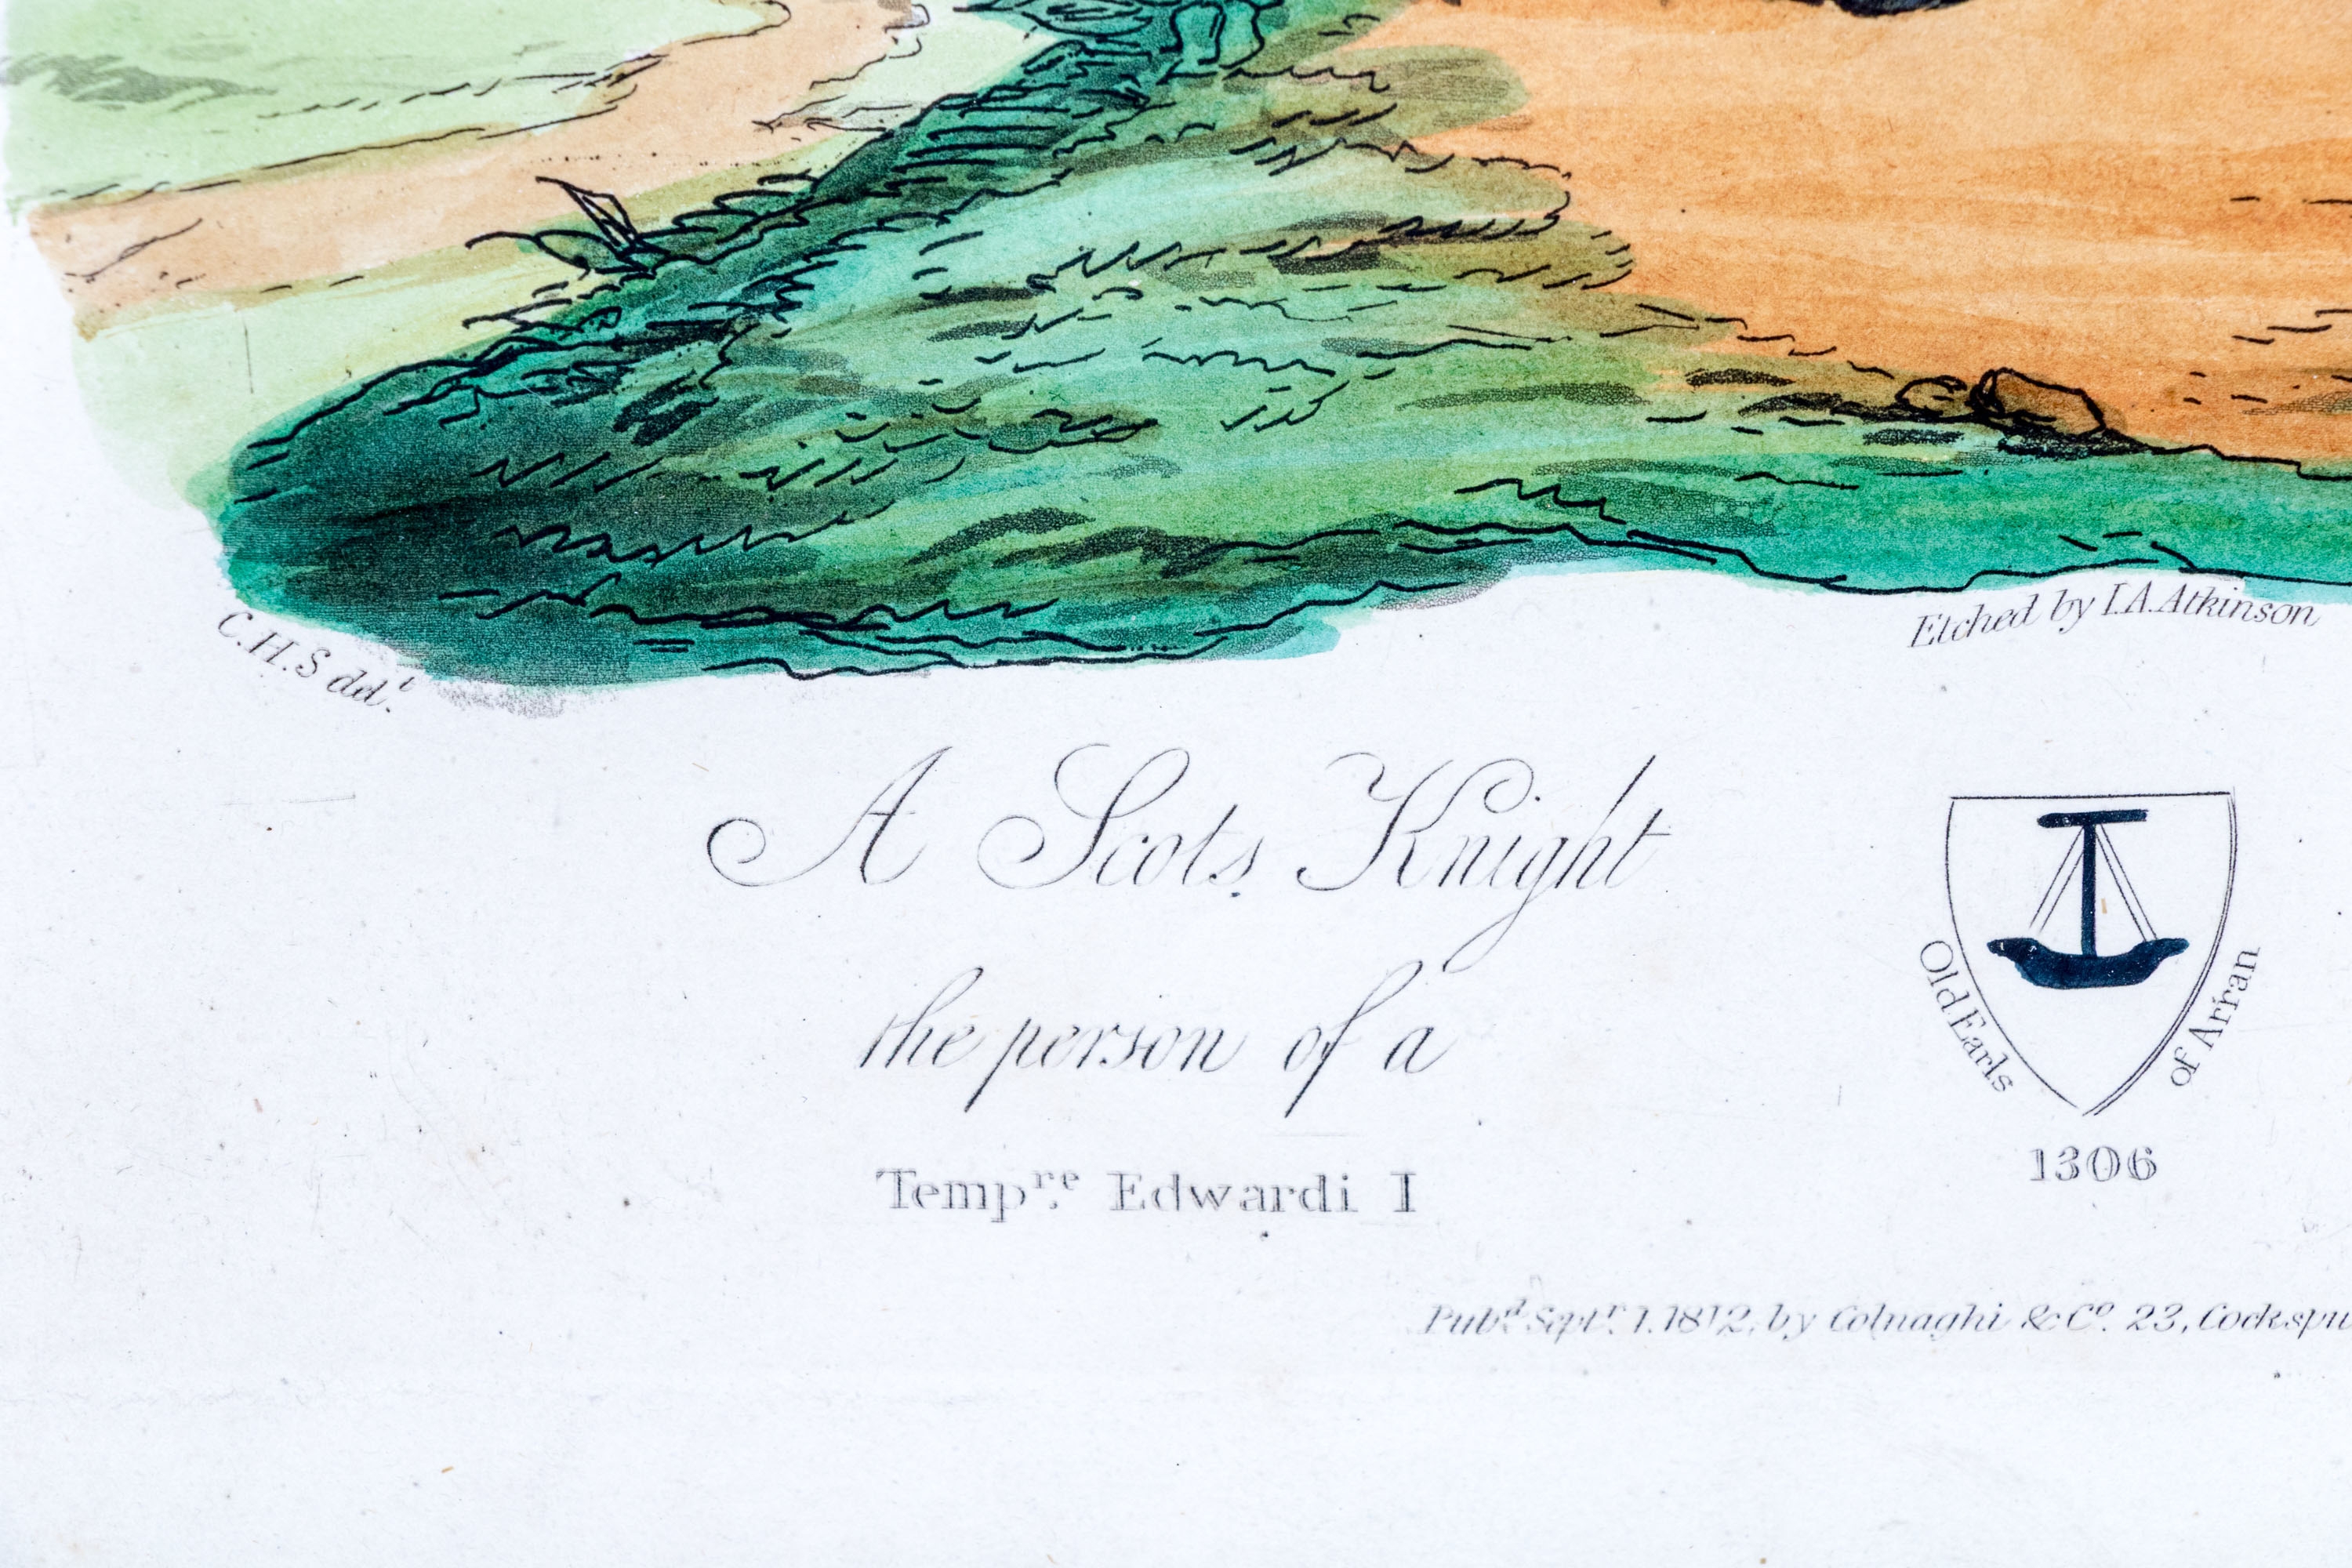 C.H.S del.t
Etched by I.A. Atkinson
A Scots Knight
the person of a
Temp.re Edwardi I
Old Earls of Arran
1306
Pub.d Sept.r 1.1812, by Colnaghi & Co. 23, Cockspu